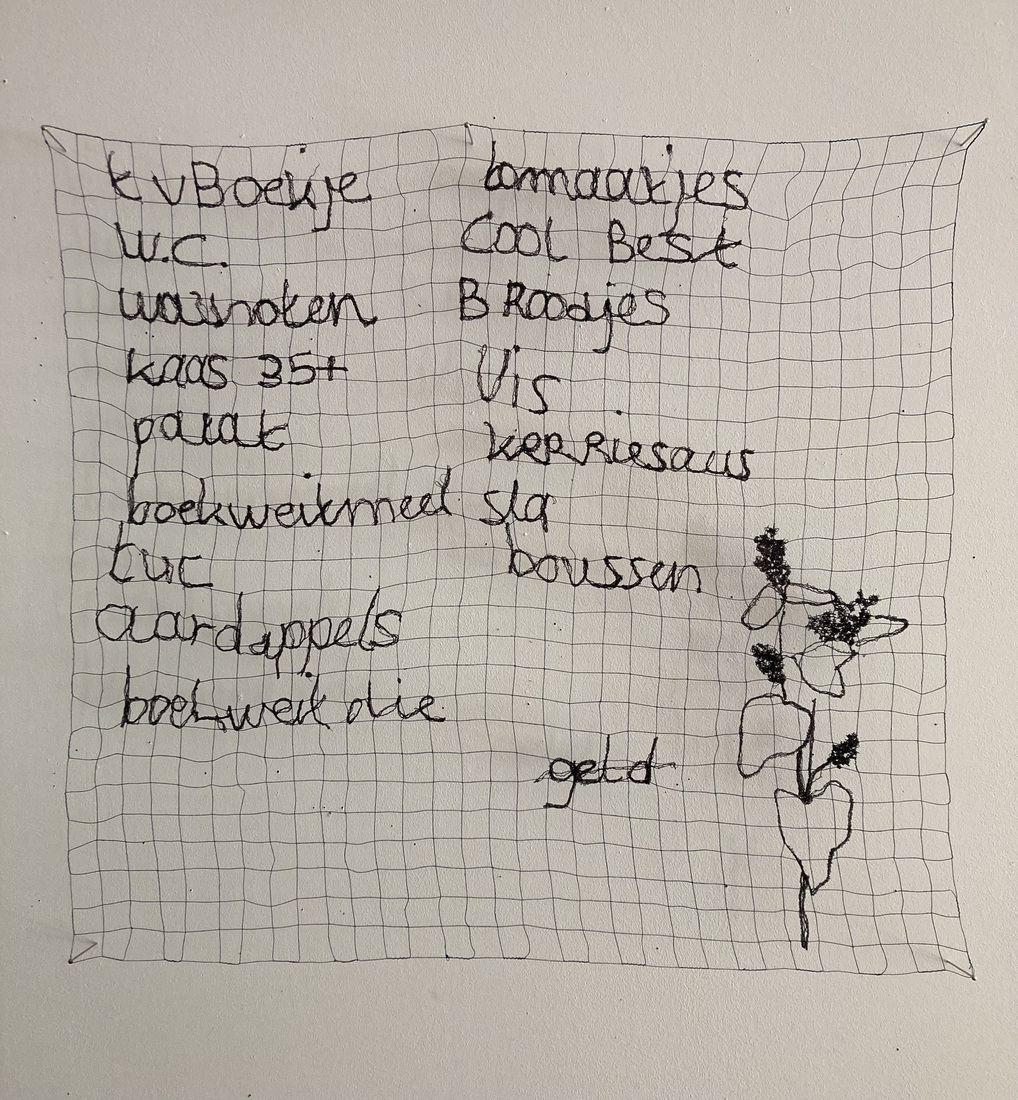 tvBoekje
W.C.
walnoten
kaas 35+
boekweitmeel
tuc
aardappels
boekweit die
tomaatjes
Cool Best
BRoodjes
Vis
keRRiesaus
sla
geld